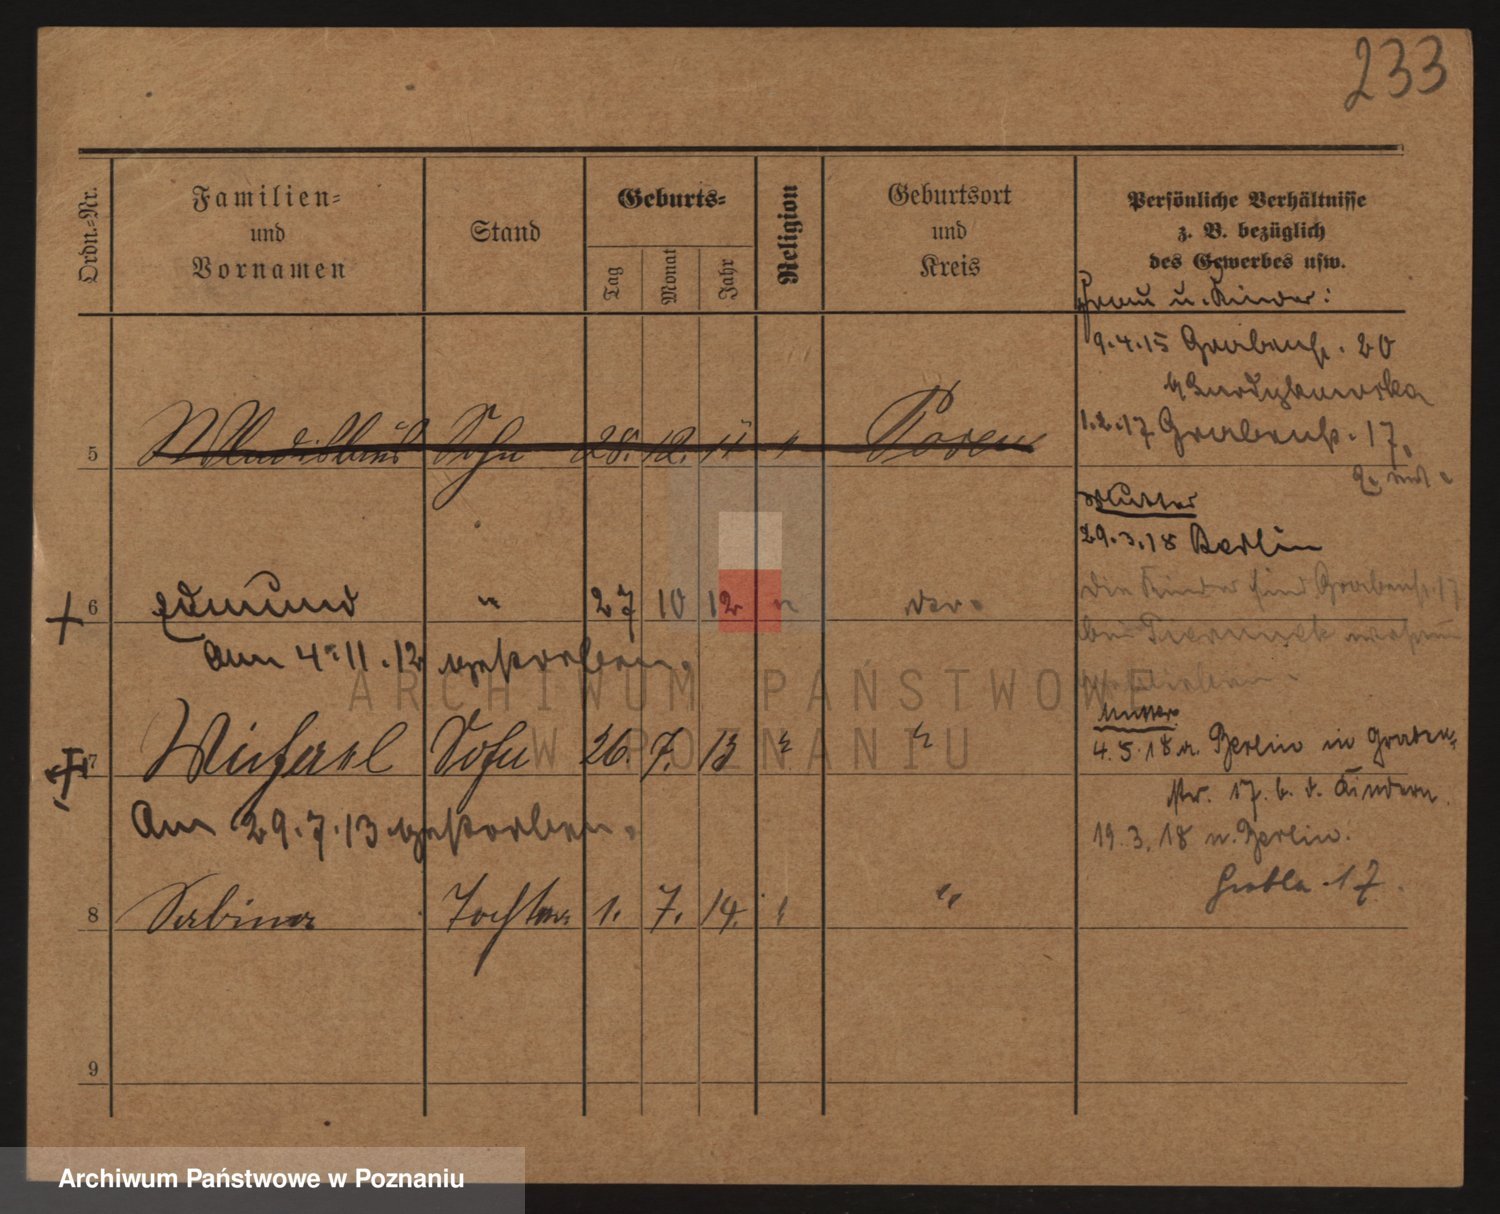 233
Ordn.-Nr.
Familien- und Vornamen
Stand
Geburts-
Tag
Monat
Jahr
Religion
Geburtsort und Kreis
Persönliche Verhältnisse
z. B. bezüglich
des Gewerbes usw.
Frau u. Kinder:
9.4.15 Grabenstr. 20
1.2.17 Grabenstr. 17.
5 Wladislaus Sohn 28. 12. 11 " Posen
Mutter
29.3.18 Berlin
6 Edmund " 27 10 12 " "
die Kinder sind Grabenstr. 17
bei
am 4.11.12 gestorben.
ARCHIWUM PAŃSTWOWE
W POZNANIU
Mutter
7 Michael Sohn 26. 7. 13 " "
4.5.18 v. Berlin in Graben-
str. 17 b. d. Kindern.
Am 29.7.13 gestorben.
19.3.18 n. Berlin.
Grobla 17.
8 Sabina Tochter 1. 7. 14. " "
9
Archiwum Państwowe w Poznaniu